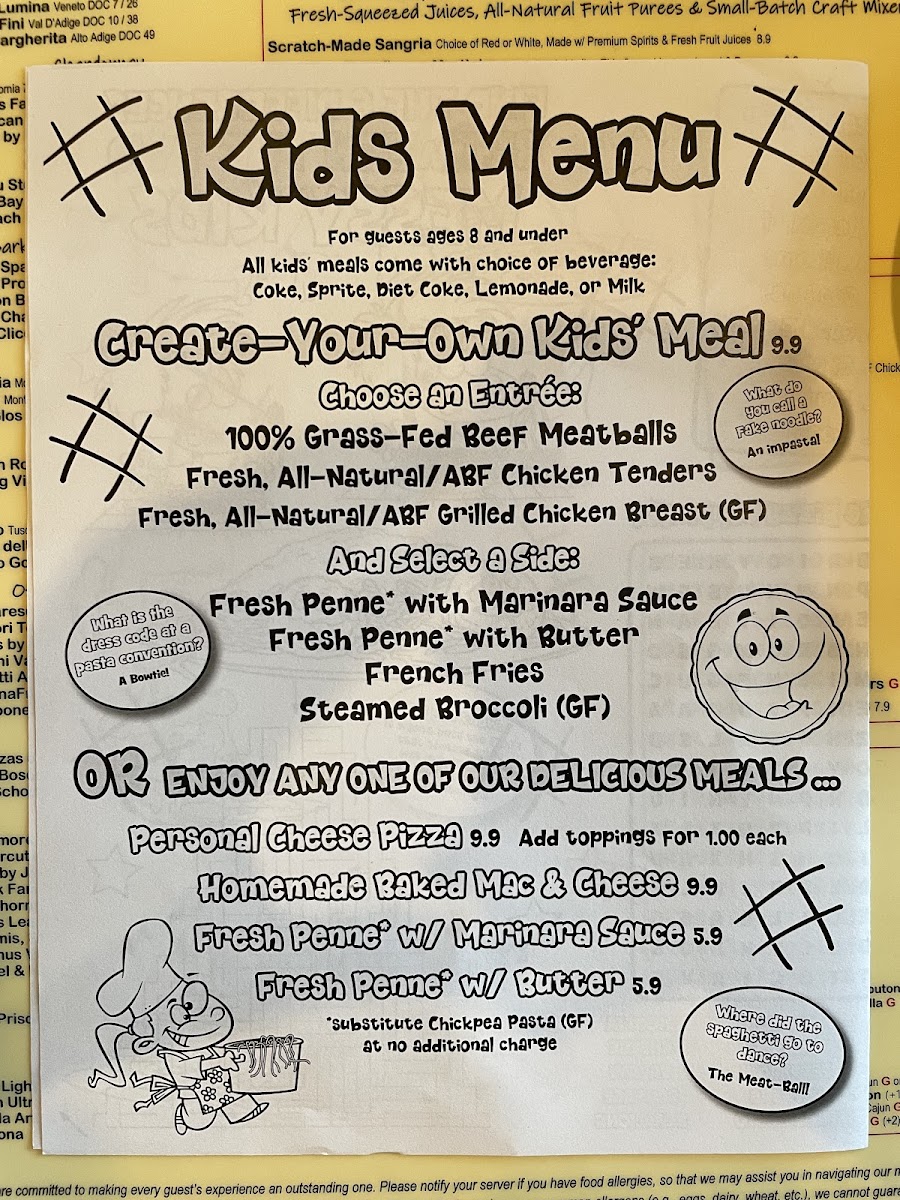 Lumina Veneto DOC 7 / 26
Fini Val D'Adige DOC 10 / 38
argherita Alto Adige DOC 49
Fresh-Squeezed Juices, All-Natural Fruit Purees & Small-Batch Craft Mixe
Scratch-Made Sangria Choice of Red or White, Made w/ Premium Spirits & Fresh Fruit Juices 8.9
Kids Menu
For guests ages 8 and under
All kids' meals come with choice of beverage:
Coke, Sprite, Diet Coke, Lemonade, or Milk
Create-Your-Own Kids' Meal 9.9
Choose an Entrée:
100% Grass-Fed Beef Meatballs
Fresh, All-Natural/ABF Chicken Tenders
Fresh, All-Natural/ABF Grilled Chicken Breast (GF)
What do
you call a
fake noodle?
An impasta!
And Select a Side:
Fresh Penne* with Marinara Sauce
Fresh Penne* with Butter
French Fries
Steamed Broccoli (GF)
What is the
dress code at a
pasta convention?
A Bowtie!
OR ENJOY ANY ONE OF OUR DELICIOUS MEALS ...
Personal Cheese Pizza 9.9 Add toppings for 1.00 each
Homemade Baked Mac & Cheese 9.9
Fresh Penne* w/ Marinara Sauce 5.9
Fresh Penne* w/ Butter 5.9
*substitute Chickpea Pasta (GF)
at no additional charge
Where did the
spaghetti go to
dance?
The Meat-Ball!
7.9
re committed to making every guest's experience an outstanding one. Please notify your server if you have food allergies, so that we may assist you in navigating our
(e.g., eggs, dairy, wheat, etc.), we cannot guar